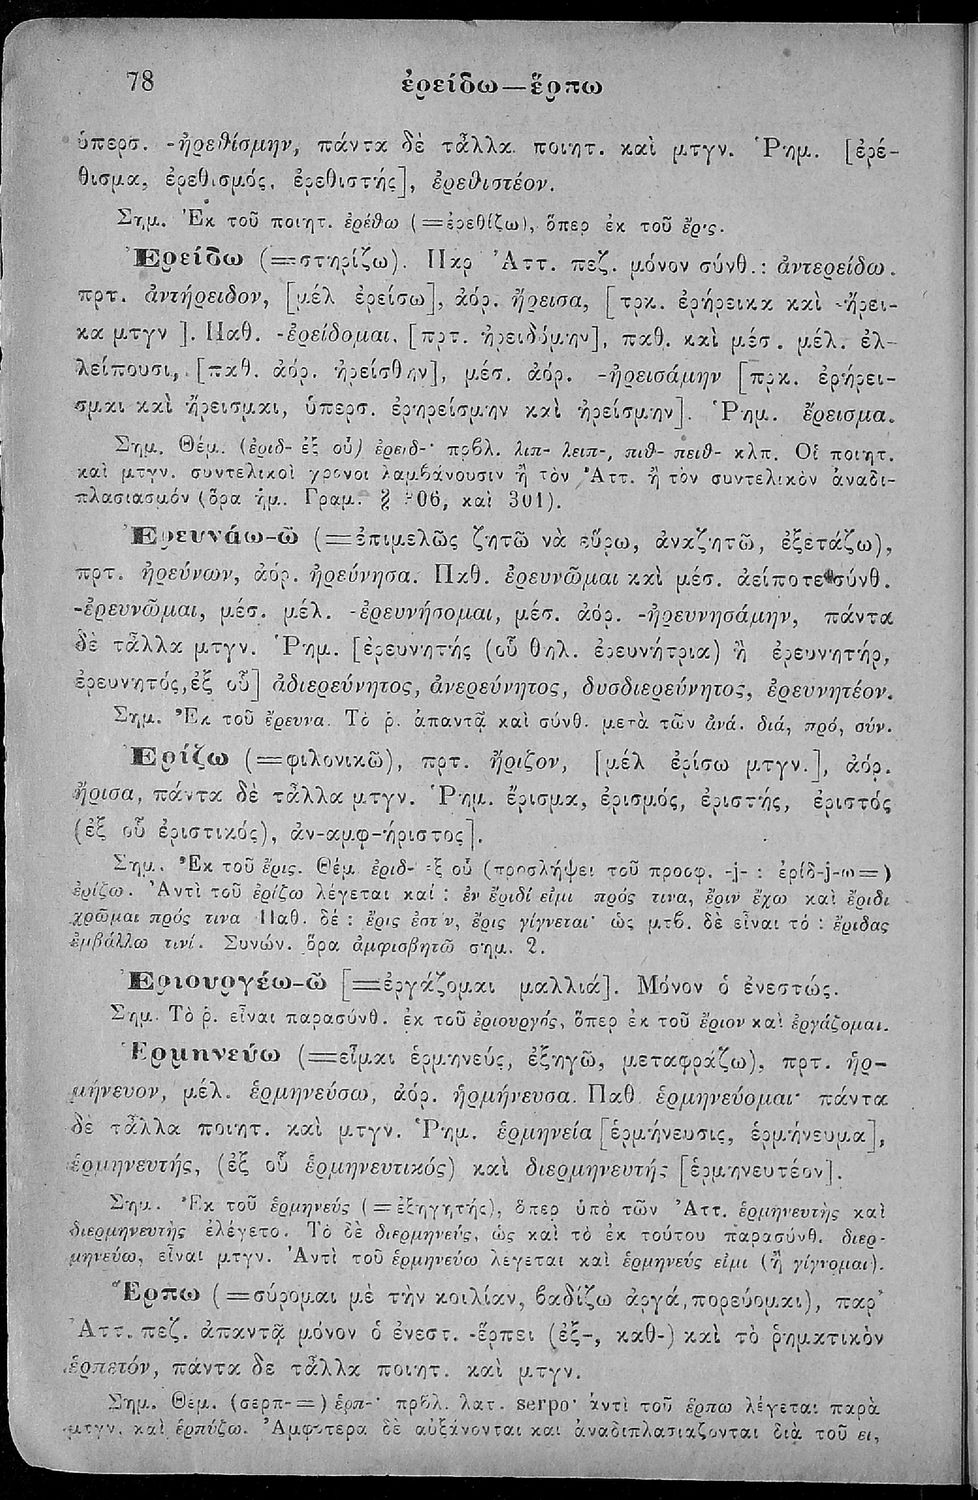 78 ἐρείδω—ἕρπω
ὑπερσ. -ἠρεθίσμην, πάντα δὲ τἆλλα ποιητ. καὶ μτγν. Ῥημ. [ἐρέ-
θισμα, ἐρεθισμός, ἐρεθιστής], ἐρεθιστέον.
Σημ. Ἐκ τοῦ ποιητ. ἐρέθω (=ἐρεθίζω), ὅπερ ἐκ τοῦ ἔρις.
Ἐρείδω (=στηρίζω). Παρ' Ἀττ. πεζ. μόνον σύνθ.: ἀντερείδω.
πρτ. ἀντήρειδον, [μέλ ἐρείσω], ἀόρ. ἤρεισα, [πρκ. ἐρήρεικα καὶ -ἤρει-
κα μτγν]. Παθ. -ἐρείδομαι, [πρτ. ἠρειδόμην], παθ. καὶ μέσ. μέλ. ἐλ-
λείπουσι, [παθ. ἀόρ. ἠρείσθην], μέσ. ἀόρ. -ἠρεισάμην [πρκ. ἐρήρει-
σμαι καὶ ἤρεισμαι, ὑπερσ. ἐρηρείσμην καὶ ἠρείσμην]. Ῥημ. ἔρεισμα.
Σημ. Θέμ. (ἐριδ- ἐξ οὗ) ἐρειδ-· πρβλ. λιπ- λειπ-, πιθ- πειθ- κλπ. Οἱ ποιητ.
καὶ μτγν. συντελικοὶ χρόνοι λαμβάνουσιν ἢ τὸν Ἀττ. ἢ τὸν συντελικὸν ἀναδι-
πλασιασμόν (ὅρα ἡμ. Γραμ. § 306, καὶ 301).
Ἐρευνάω-ῶ (=ἐπιμελῶς ζητῶ νὰ εὕρω, ἀναζητῶ, ἐξετάζω),
πρτ. ἠρεύνων, ἀόρ. ἠρεύνησα. Παθ. ἐρευνῶμαι καὶ μέσ. ἀείποτε σύνθ.
-ἐρευνῶμαι, μέσ. μέλ. -ἐρευνήσομαι, μέσ. ἀόρ. -ἠρευνησάμην, πάντα
δὲ τἆλλα μτγν. Ῥημ. [ἐρευνητής (οὗ θηλ. ἐρευνήτρια) ἢ ἐρευνητήρ,
ἐρευνητός, ἐξ οὗ] ἀδιερεύνητος, ἀνερεύνητος, δυσδιερεύνητος, ἐρευνητέον.
Σημ. Ἐκ τοῦ ἔρευνα. Τὸ ῥ. ἀπαντᾷ καὶ σύνθ. μετὰ τῶν ἀνά. διά, πρό, σύν.
Ἐρίζω (=φιλονικῶ), πρτ. ἤριζον, [μέλ ἐρίσω μτγν.], ἀόρ.
ἤρισα, πάντα δὲ τἆλλα μτγν. Ῥημ. ἔρισμα, ἐρισμός, ἐριστής, ἐριστός
(ἐξ οὗ ἐριστικός), ἀν-αμφ-ήριστος].
Σημ. Ἐκ τοῦ ἔρις. Θέμ. ἐριδ- ἐξ οὗ (προσλήψει τοῦ προσφ. -j- : ἐρίδ-j-ω=)
ἐρίζω. Ἀντὶ τοῦ ἐρίζω λέγεται καί : ἐν ἔριδί εἰμι πρός τινα, ἔριν ἔχω καὶ ἔριδι
χρῶμαι πρός τινα Παθ. δέ : ἔρις ἐστίν, ἔρις γίγνεται· ὡς μτβ. δὲ εἶναι τό : ἔριδας
ἐμβάλλω τινί. Συνών. ὅρα ἀμφισβητῶ σημ. 2.
Ἐριουργέω-ῶ [=ἐργάζομαι μαλλιά]. Μόνον ὁ ἐνεστώς.
Σημ. Τὸ ῥ. εἶναι παρασύνθ. ἐκ τοῦ ἐριουργός, ὅπερ ἐκ τοῦ ἔριον καὶ ἐργάζομαι.
Ἑρμηνεύω (=εἶμαι ἑρμηνεύς, ἐξηγῶ, μεταφράζω), πρτ. ἡρ-
μήνευον, μέλ. ἑρμηνεύσω, ἀόρ. ἡρμήνευσα. Παθ ἑρμηνεύομαι· πάντα
δὲ τἆλλα ποιητ. καὶ μτγν. Ῥημ. ἑρμηνεία [ἑρμήνευσις, ἑρμήνευμα],
ἑρμηνευτής, (ἐξ οὗ ἑρμηνευτικός) καὶ διερμηνευτής [ἑρμηνευτέον].
Σημ. Ἐκ τοῦ ἑρμηνεύς (=ἐξηγητής), ὅπερ ὑπὸ τῶν Ἀττ. ἑρμηνευτὴς καὶ
διερμηνευτὴς ἐλέγετο. Τὸ δὲ διερμηνεύς, ὡς καὶ τὸ ἐκ τούτου παρασύνθ. διερ-
μηνεύω, εἶναι μτγν. Ἀντὶ τοῦ ἑρμηνεύω λέγεται καὶ ἑρμηνεύς εἰμι (ἢ γίγνομαι).
Ἕρπω (=σύρομαι μὲ τὴν κοιλίαν, βαδίζω ἀργά, πορεύομαι), παρ'
Ἀττ. πεζ. ἀπαντᾷ μόνον ὁ ἐνεστ. -ἕρπει (ἐξ-, καθ-) καὶ τὸ ῥηματικὸν
ἑρπετόν, πάντα δὲ τἆλλα ποιητ. καὶ μτγν.
Σημ. Θέμ. (σερπ-=) ἑρπ-· πρβλ. λατ. serpo· ἀντὶ τοῦ ἕρπω λέγεται παρὰ
μτγν. καὶ ἑρπύζω. Ἀμφότερα δὲ αὐξάνονται καὶ ἀναδιπλασιάζονται διὰ τοῦ ει,